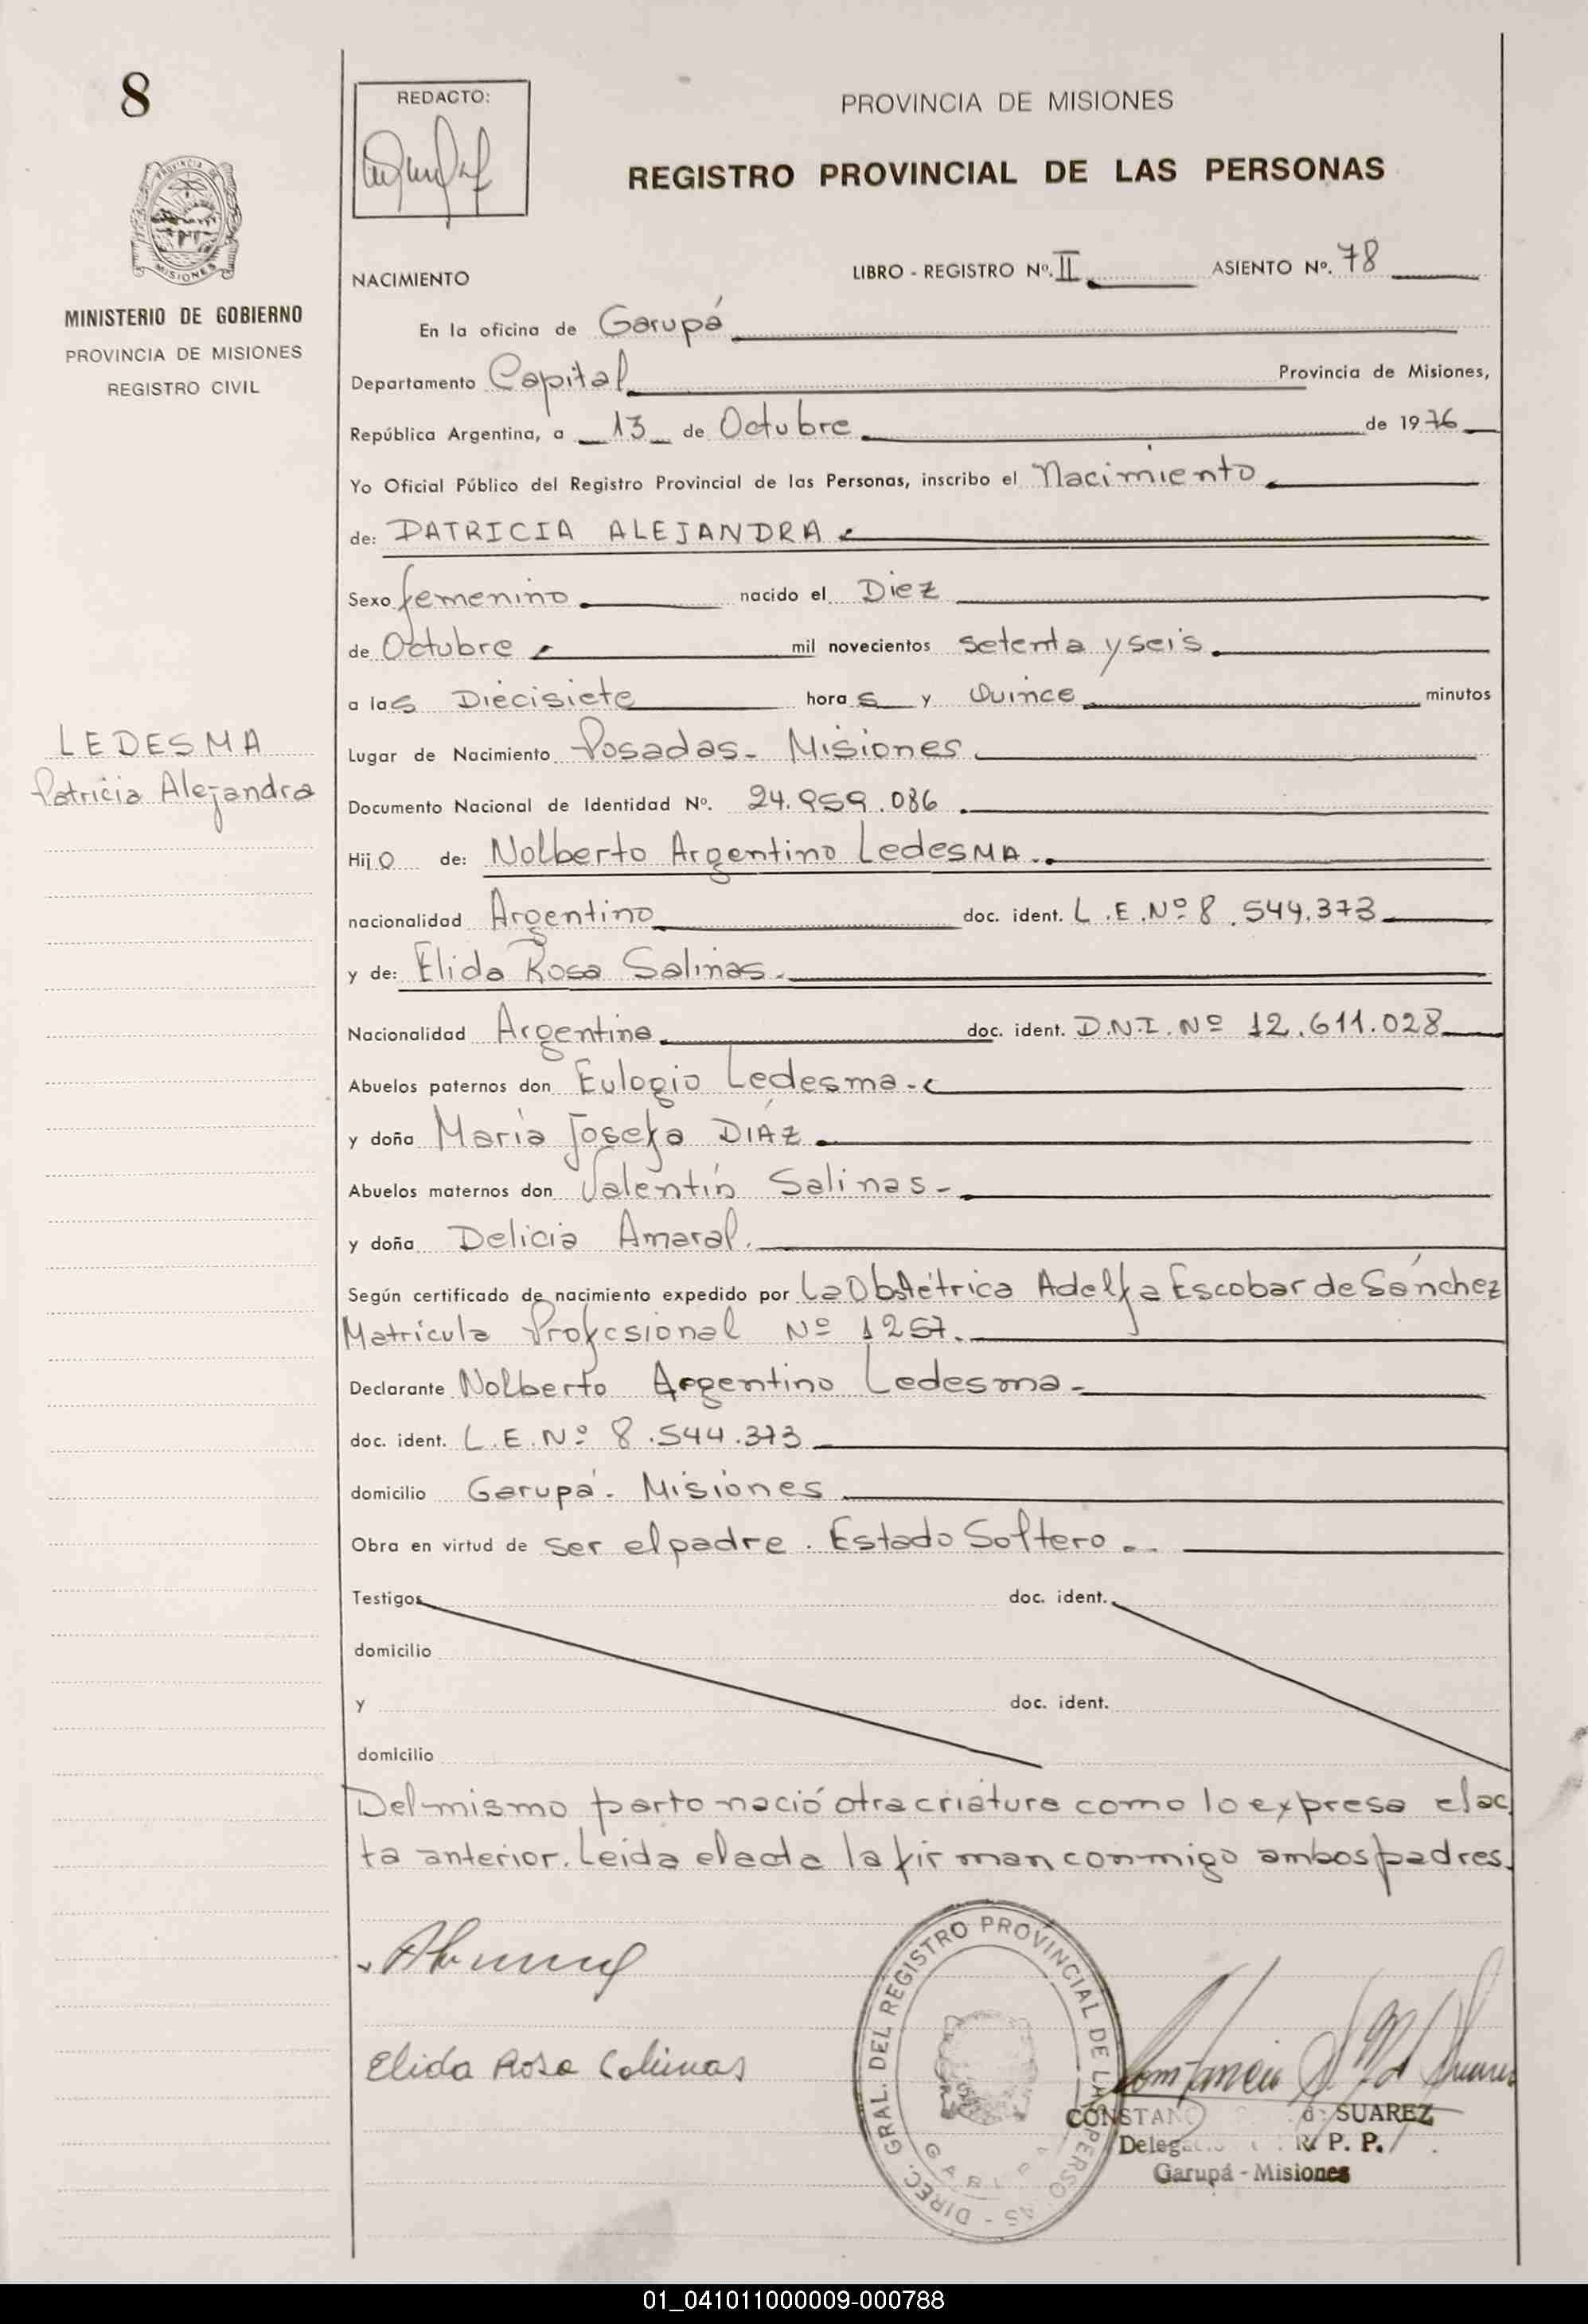 8
REDACTO:
PROVINCIA DE MISIONES
REGISTRO PROVINCIAL DE LAS PERSONAS
MISIONES
MINISTERIO DE GOBIERNO
PROVINCIA DE MISIONES
REGISTRO CIVIL
LEDESMA
Patricia Alejandra
NACIMIENTO LIBRO - REGISTRO Nº. II ASIENTO Nº. 78
En la oficina de Garupá
Departamento Capital Provincia de Misiones,
República Argentina, a 13 de Octubre de 1976
Yo Oficial Público del Registro Provincial de las Personas, inscribo el Nacimiento
de: PATRICIA ALEJANDRA
Sexo femenino nacido el Diez
de Octubre mil novecientos setenta y seis
a las Diecisiete horas y Quince minutos
Lugar de Nacimiento Posadas - Misiones
Documento Nacional de Identidad Nº. 24.959.086
Hija de: Nolberto Argentino LedesMA.
nacionalidad Argentino doc. ident. L.E.Nº 8.544.373
y de: Elida Rosa Salinas.
Nacionalidad Argentina doc. ident. D.N.I. Nº 12.611.028
Abuelos paternos don Eulogio Ledesma.
y doña María Josefa DÍAZ
Abuelos maternos don Valentín Salinas -
y doña Delicia Amaral.
Según certificado de nacimiento expedido por La Obstétrica Adelfa Escobar de Sánchez
Matrícula Profesional Nº 1257.
Declarante Nolberto Argentino Ledesma -
doc. ident. L.E.Nº 8.544.373
domicilio Garupá - Misiones
Obra en virtud de ser el padre. Estado Soltero.
Testigos doc. ident.
domicilio
y doc. ident.
domicilio
Del mismo parto nació otra criatura como lo expresa el ac
ta anterior. Leida el acta la firman conmigo ambos padres.
Elida Rosa Salinas
DIREC. GRAL. DEL REGISTRO PROVINCIAL DE LAS PERSONAS -
GARUPA
SUAREZ
R. P. P.
Garupá - Misiones
01_041011000009-000788